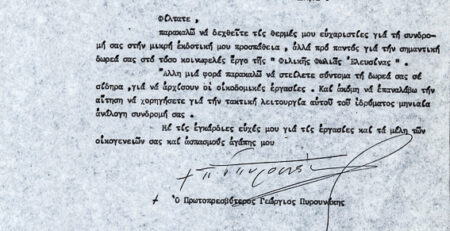 Φίλτατε,
παρακαλῶ νά δεχθεῖτε τίς θερμές μου εὐχαριστίες γιά τή συνδρο-
μή σας στήν μικρή ἐκδοτική μου προσπάθεια , ἀλλά πρό παντός γιά τήν σημαντική
δωρεά σας στό τόσο κοινωφελές ἔργο τῆς " Φιλικῆς Φωλιᾶς Ἐλευσίνας" .
Ἄλλη μιά φορά παρακαλῶ νά στείλετε σύντομα τή δωρεά σας σέ
σίδηρα ,γιά νά ἀρχίσουν οἱ οἰκοδομικές ἐργασίες . Καί ἀκόμη νά ἐπαναλάβω τήν
αἴτηση νά χορηγήσετε γιά τήν τακτική λειτουργία αὐτοῦ τοῦ ἱδρύματος μηνιαία
ἀνάλογη συνδρομή σας .
Μέ τίς ἐγκάρδιες εὐχές μου γιά τίς ἐργασίες καί τά μέλη τῶν
οἰκογενειῶν σας καί ἀσπασμούς ἀγάπης μου
Ὁ Πρωτοπρεσβύτερος Γεώργιος Πυρουνάκης